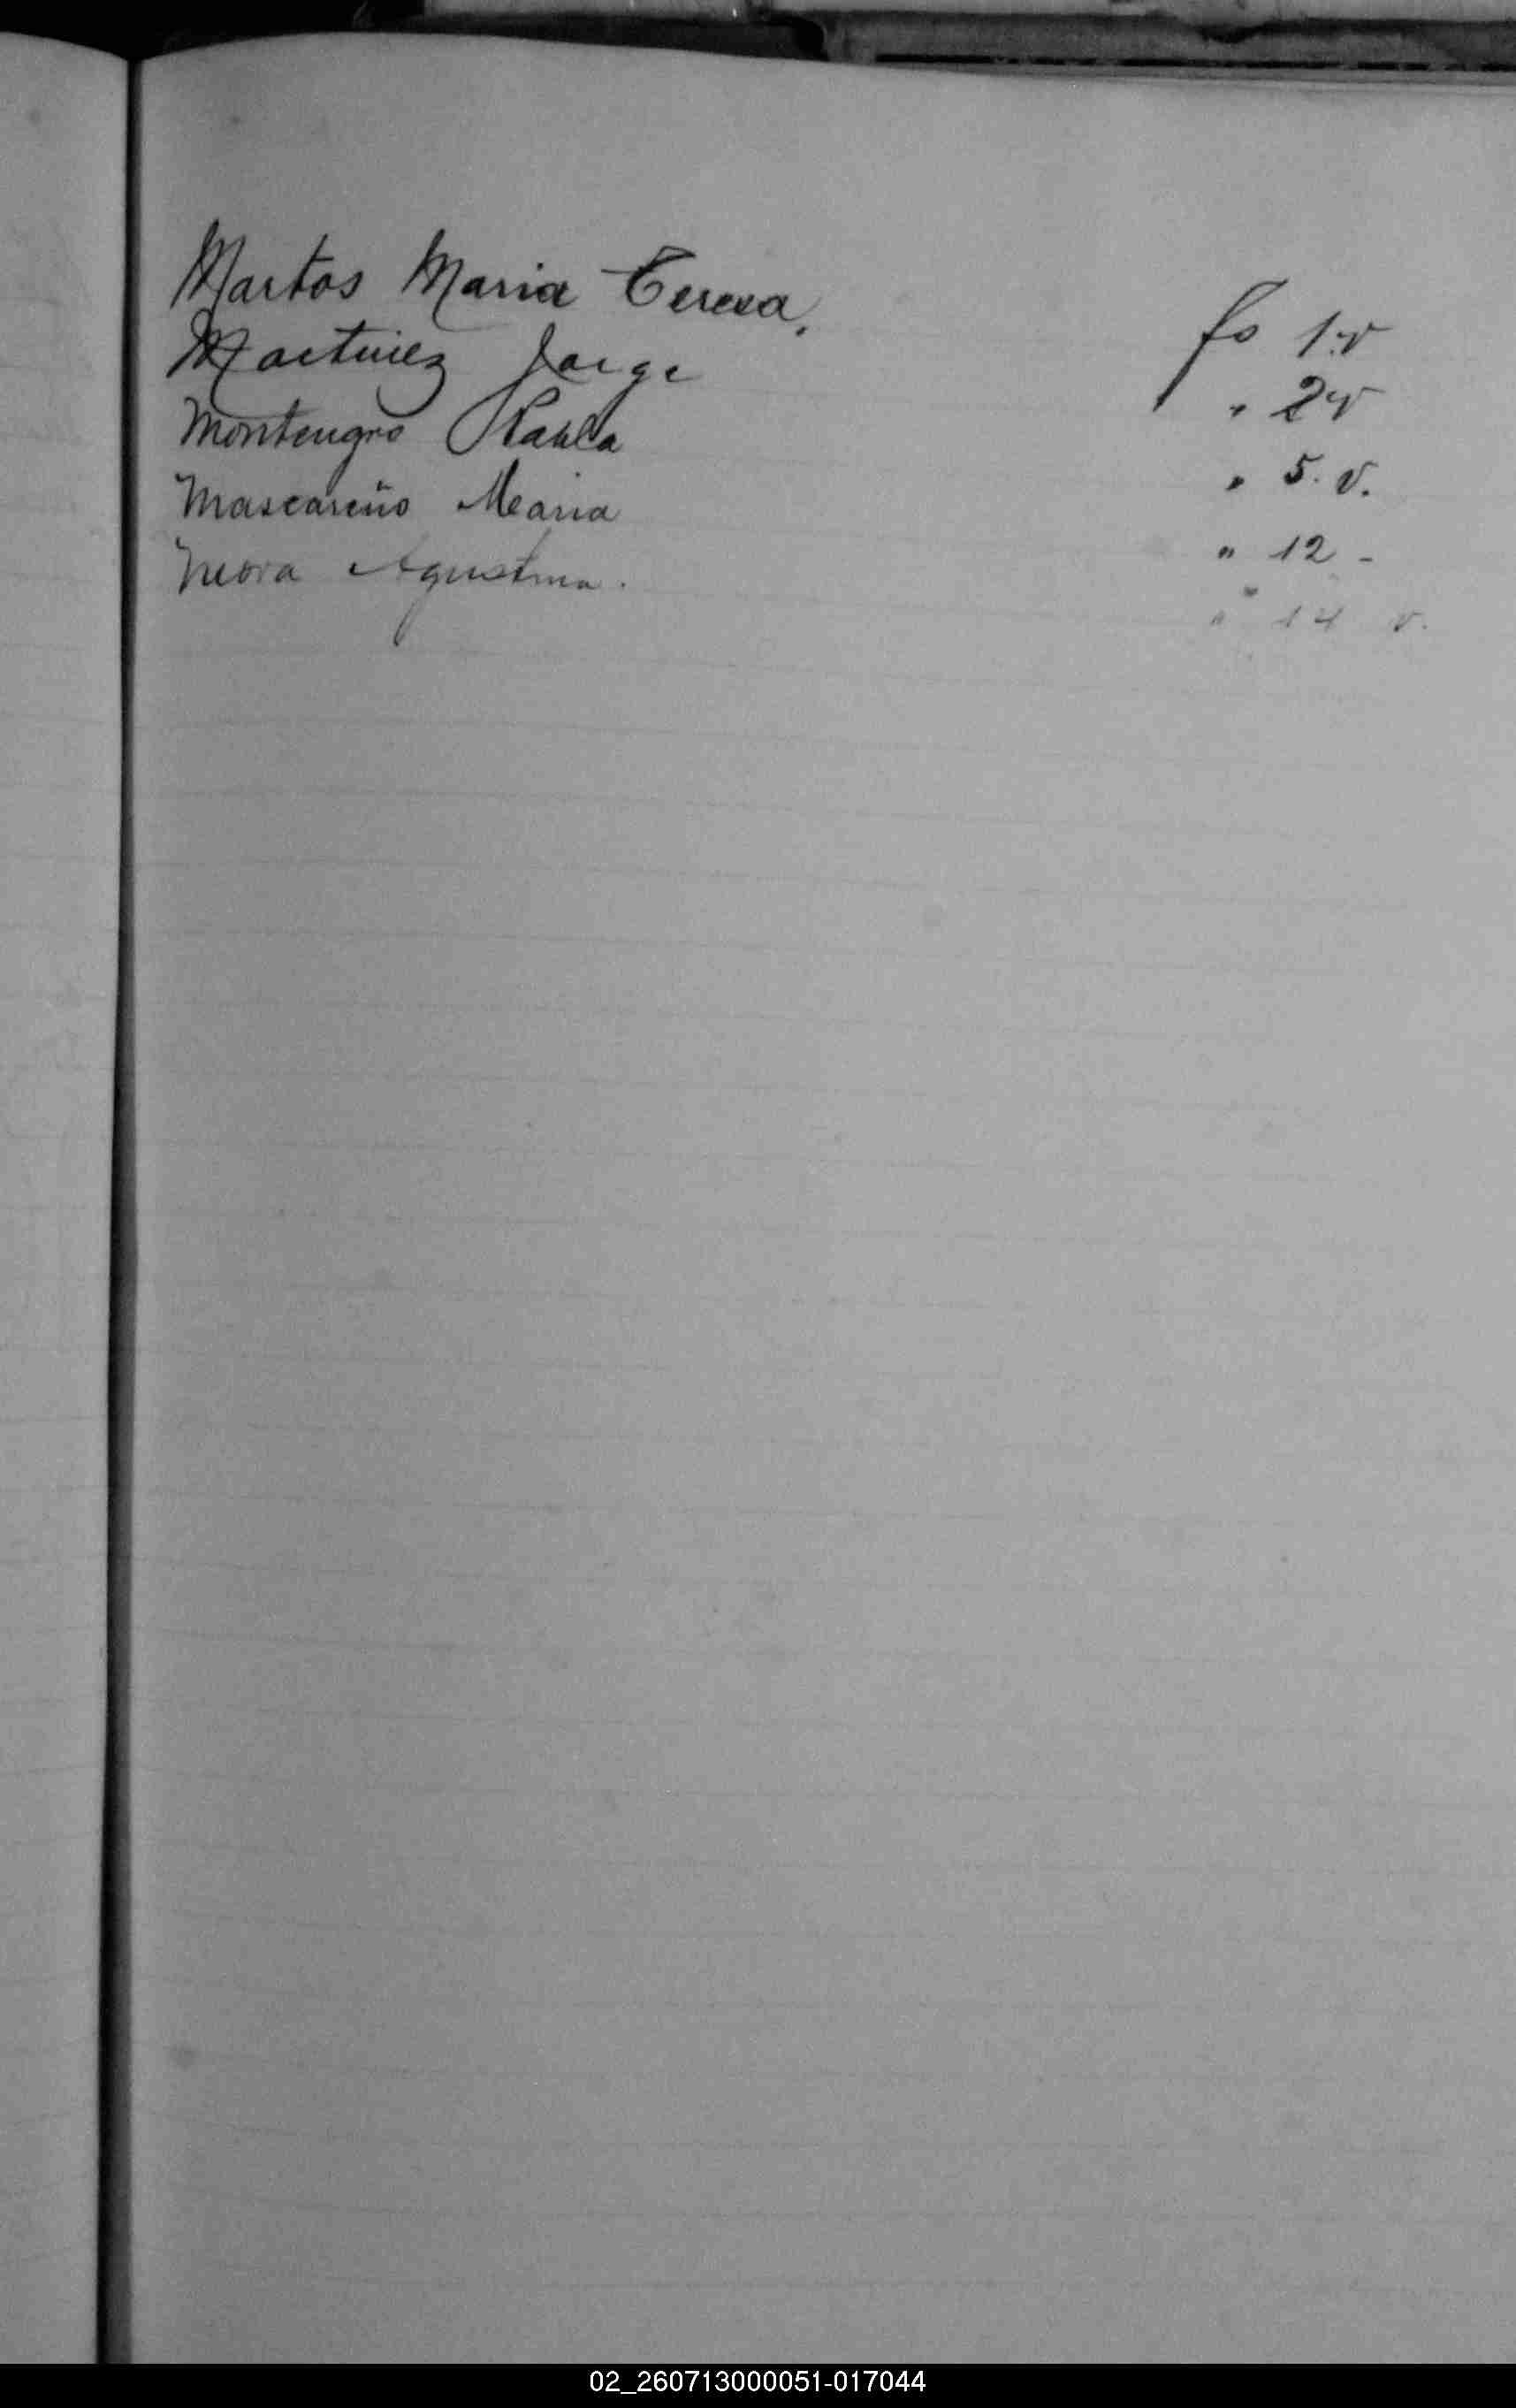 Martos Maria Teresa, fo 1.v
Martinez Jorge " 2v
Montenegro Pabla " 5. v.
Mascareño Maria " 12 -
Mora Agustina. " 14 v.
02_260713000051-017044